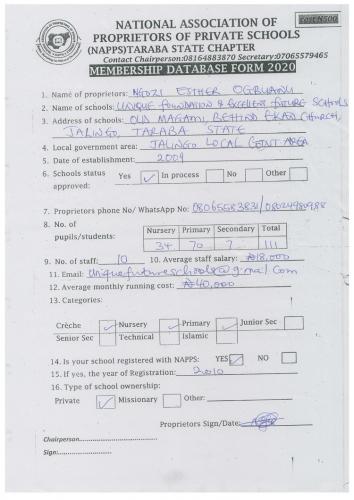 cost N500
NATIONAL ASSOCIATION OF
PROPRIETORS OF PRIVATE SCHOOLS
(NAPPS)TARABA STATE CHAPTER
Contact Chairperson:08164883870 Secretary:07065579465
MEMBERSHIP DATABASE FORM 2020
1. Name of proprietors: NGOZI ESTHER OGBUANU
2. Name of schools: UNIQUE FOUNDATION & EXCELLENT FUTURE SCHOOLS
3. Address of schools: OLD MAGAMI, BEHIND EKAN CHURCH,
JALINGO, TARABA STATE
4. Local government area: JALINGO LOCAL GOVT AREA
5. Date of establishment: 2009
6. Schools status Yes ✓ In process No Other
approved:
7. Proprietors phone No/ WhatsApp No: 08065583831/08024980988
8. No. of Nursery Primary Secondary Total
pupils/students: 34 70 7 111
9. No. of staff: 10 10. Average staff salary: ₦18,000
11. Email: Uniquefutureschools@g.mail com
12. Average monthly running cost: ₦40,000
13. Categories:
Crèche ✓ Nursery ✓ Primary ✓ Junior Sec
Senior Sec Technical Islamic
14. Is your school registered with NAPPS: YES ✓ NO
15. If yes, the year of Registration: 2010
16. Type of school ownership:
Private ✓ Missionary Other:
Proprietors Sign/Date:
Chairperson
Sign: